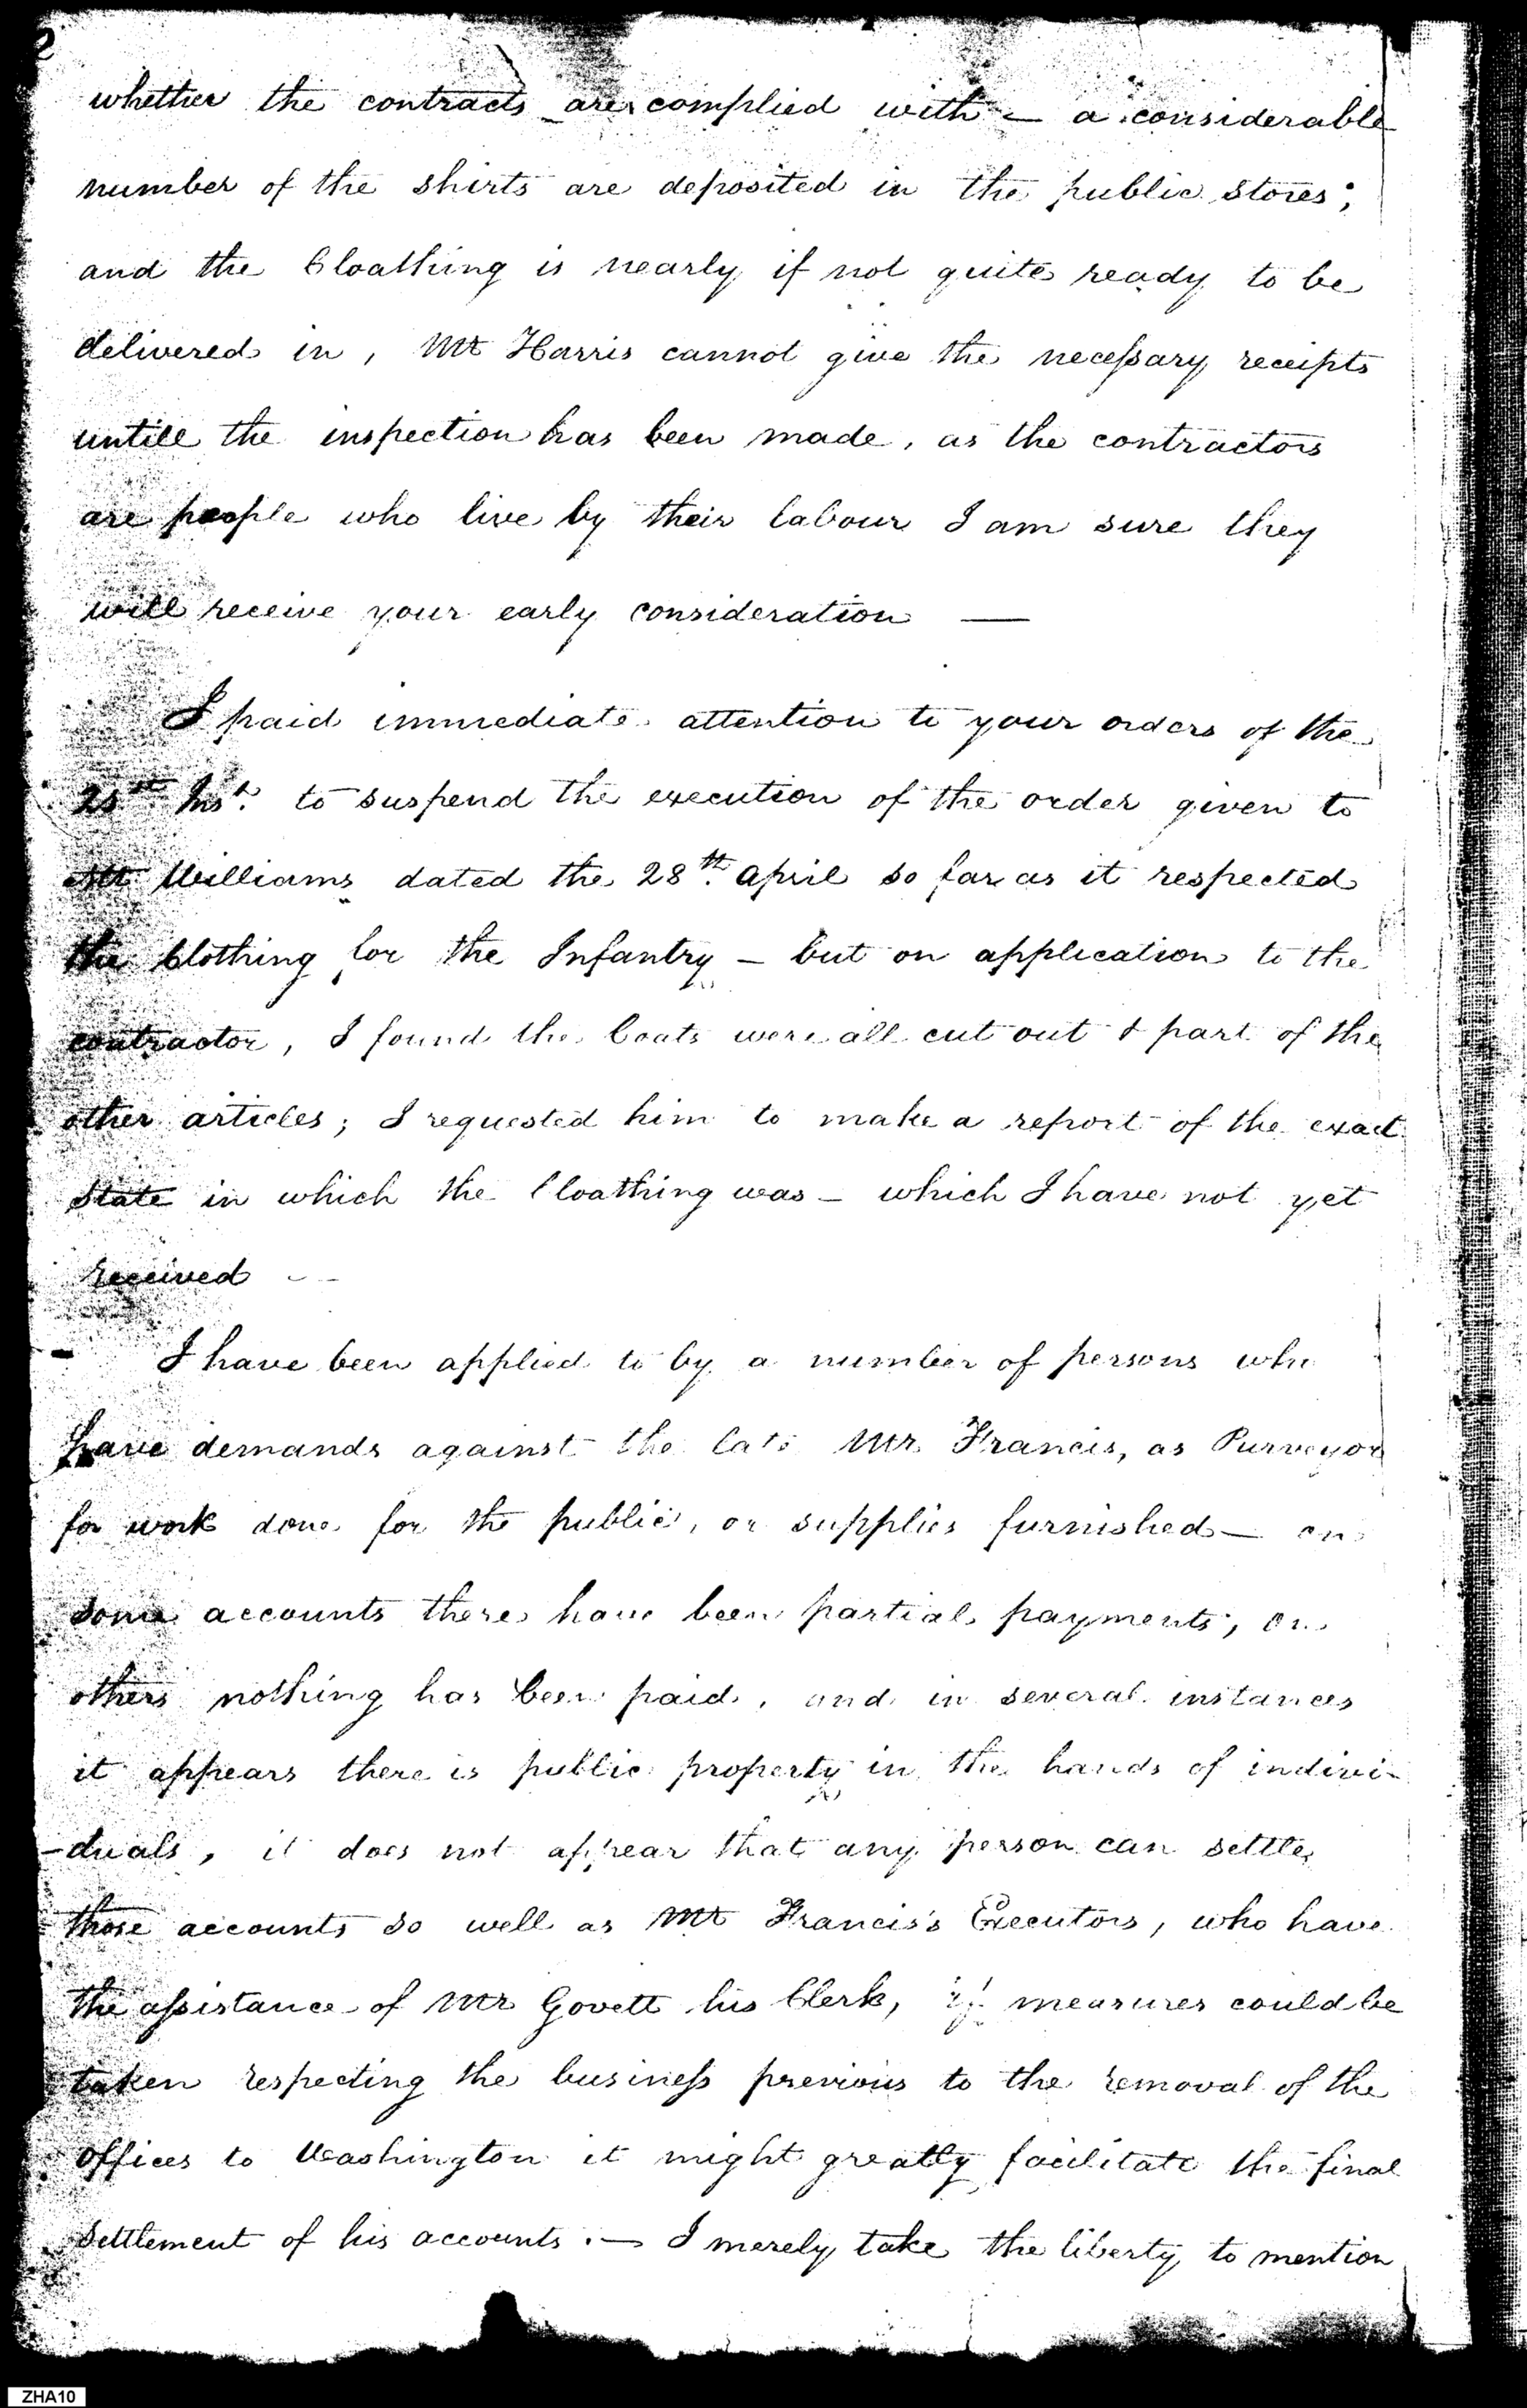 whether the contracts are complied with — a considerable
number of the shirts are deposited in the public stores;
and the Cloathing is nearly if not quite ready to be
delivered in, Mr Harris cannot give the necessary receipts
untill the inspection has been made, as the contractors
are people who live by their labour I am sure they
will receive your early consideration —
I paid immediate attention to your orders of the
Inst. to suspend the execution of the order given to
Mr Williams dated the 28th. april so far as it respected
the Clothing for the Infantry — but on application to the
contractor, I found the Coats were all cut out & part of the
other articles; I requested him to make a report of the exact
state in which the Cloathing was — which I have not yet
received —
I have been applied to by a number of persons who
have demands against the late Mr. Francis, as Purveyor
for work done for the public, or supplies furnished — on
some accounts there have been partial payments, on
others nothing has been paid, and in several instances
it appears there is public property in the hands of indivi-
-duals, it does not appear that any person can settle
those accounts so well as Mr Francis's Executors, who have
the assistance of Mr Govett his Clerk, if measures could be
taken respecting the business previous to the removal of the
offices to Washington it might greatly facilitate the final
settlement of his accounts. — I merely take the liberty to mention
ZHA10